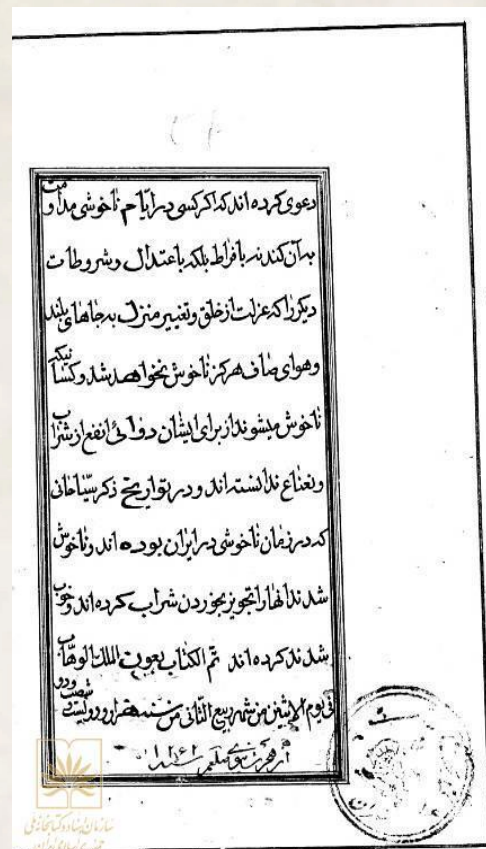 دعوی کرده اند که اگر کسی در ایام ناخوشی مداومت
به آن کند نه بافراط بلکه باعتدال و شروطات
دیکر را که عزلت از خلق و تغییر منزل به جاهای بلند
و هوای صاف هرکز ناخوش نخواهد شد و کسانیکه
ناخوش میشوند از برای ایشان دوائی انفع از شراب
و نعناع ندانسته اند و در تواریخ ذکر سیاحانی
که در زمان ناخوشی در ایران بوده اند و ناخوش
شدند انها را تجویز بخوردن شراب کرده اند و خوب
شدند کرده اند تم الکتاب بعون الملک الوهاب
فی یوم الاثنین من شهر ربیع الثانی من سنه هزار و دویست و شصت و دو
از هجرت نبوی صلعم سنه ۱۲۶۲
سازمان اسناد و کتابخانه ملی
جمهوری اسلامی ایران